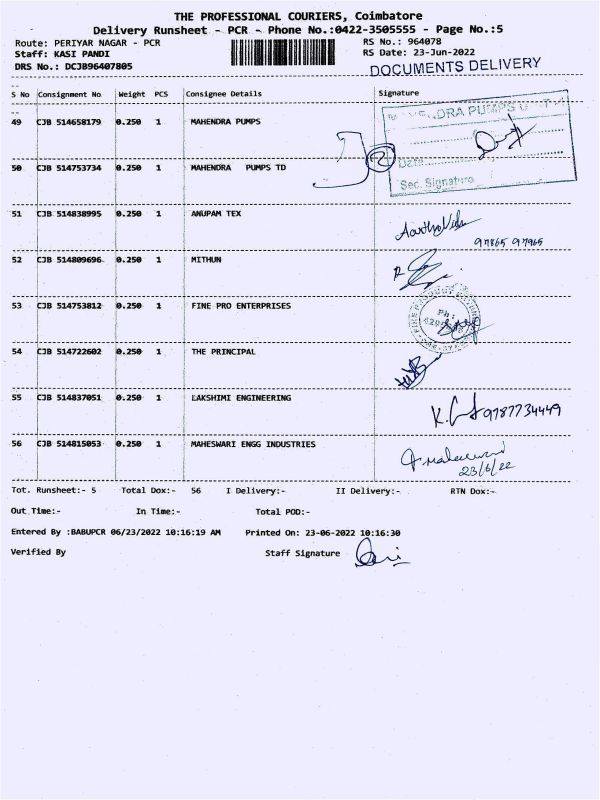 THE PROFESSIONAL COURIERS, Coimbatore
Delivery Runsheet - PCR - Phone No.:0422-3505555 - Page No.:5
Route: PERIYAR NAGAR - PCR RS No.: 964078
Staff: KASI PANDI RS Date: 23-Jun-2022
DRS No.: DCJB96407805 DOCUMENTS DELIVERY
S No Consignment No Weight PCS Consignee Details Signature
49 CJB 514658179 0.250 1 MAHENDRA PUMPS
DRA PUMPS
50 CJB 514753734 0.250 1 MAHENDRA PUMPS TD 2
Date
Sec. Signature
51 CJB 514838995 0.250 1 ANUPAM TEX
97865 97965
52 CJB 514809696 0.250 1 MITHUN
53 CJB 514753812 0.250 1 FINE PRO ENTERPRISES
Ph:
54 CJB 514722602 0.250 1 THE PRINCIPAL
55 CJB 514837051 0.250 1 LAKSHIMI ENGINEERING
9787734449
56 CJB 514815053 0.250 1 MAHESWARI ENGG INDUSTRIES
23/6/22
Tot. Runsheet:- 5 Total Dox:- 56 I Delivery:- II Delivery:- RTN Dox:-
Out Time:- In Time:- Total POD:-
Entered By :BABUPCR 06/23/2022 10:16:19 AM Printed On: 23-06-2022 10:16:30
Verified By Staff Signature